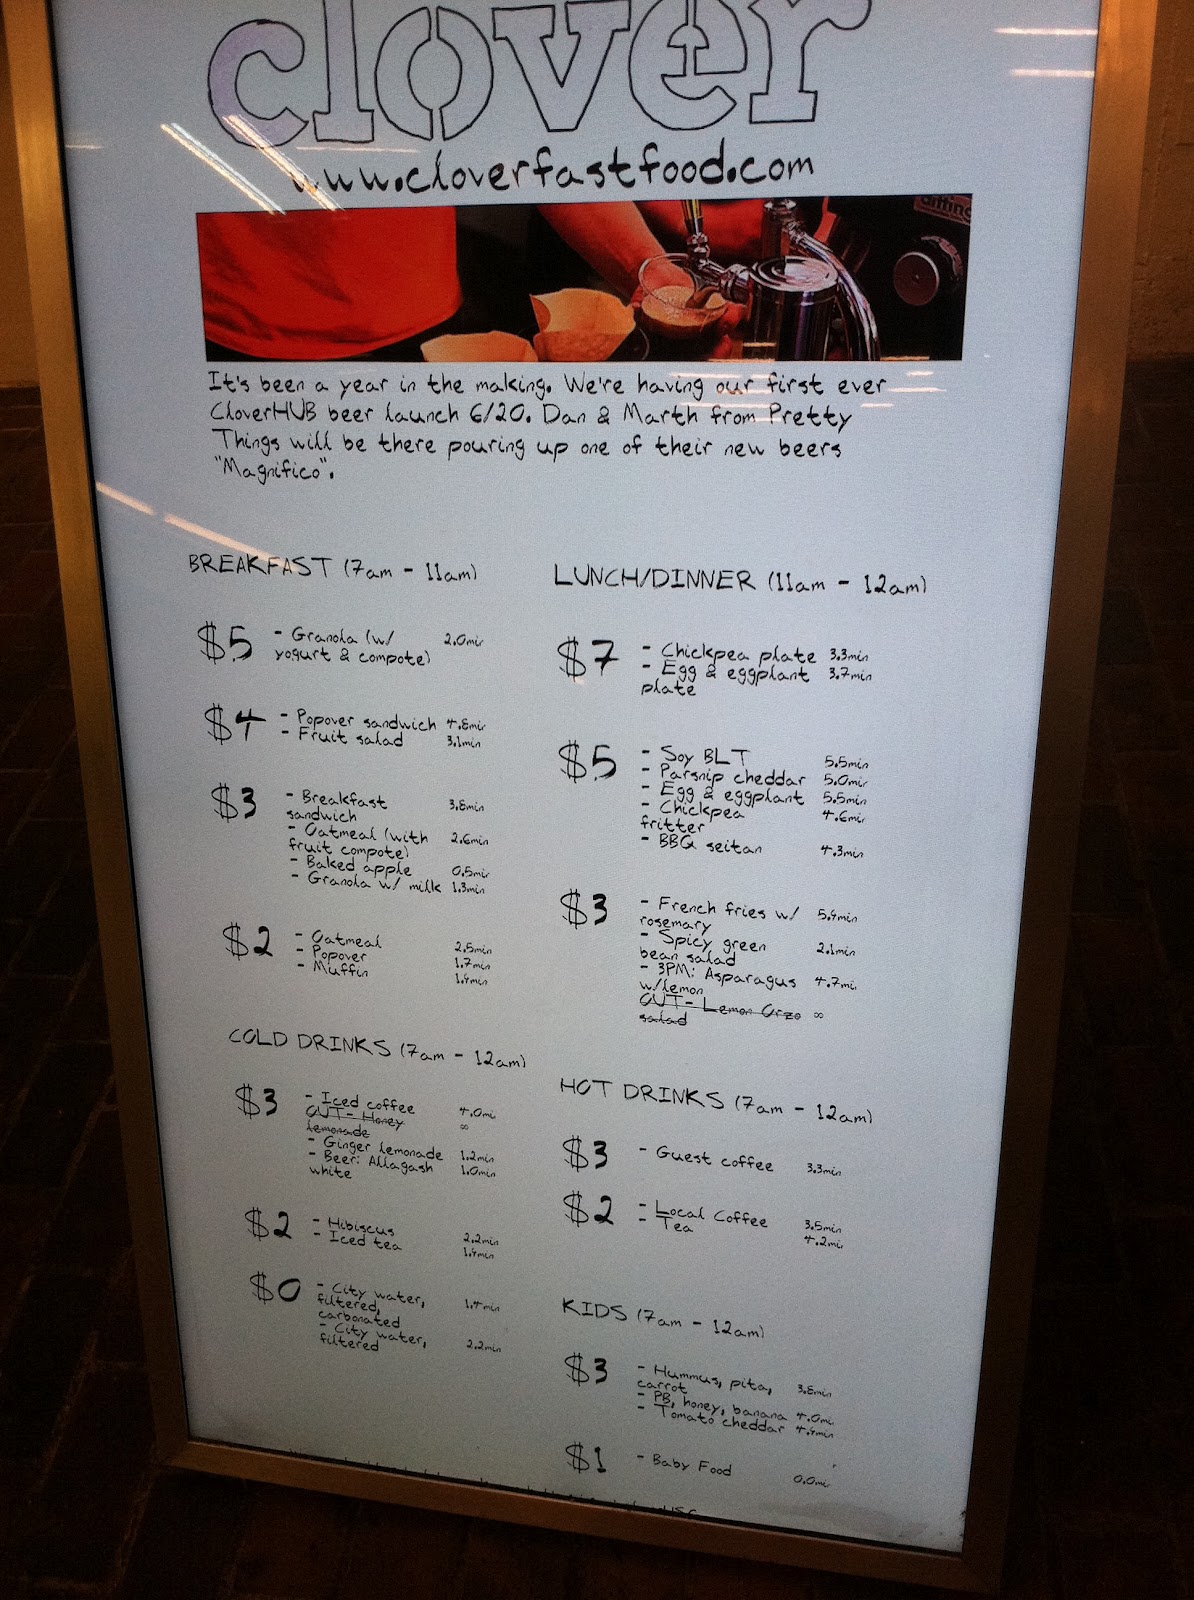 clover
www.cloverfastfood.com
It's been a year in the making. We're having our first ever
CloverHUB beer launch 6/20. Dan & Marth from Pretty
Things will be there pouring up one of their new beers
"Magnifico".
BREAKFAST (7am - 11am)
$5 - Granola (w/ 2.0min
yogurt & compote)
$4 - Popover sandwich 4.8min
- Fruit salad 3.1min
$3 - Breakfast 3.8min
sandwich
- Oatmeal (with 2.6min
fruit compote)
- Baked apple 0.5min
- Granola w/ milk 1.3min
$2 - Oatmeal 2.5min
- Popover 1.7min
- Muffin 1.4min
COLD DRINKS (7am - 12am)
$3 - Iced coffee 4.0min
OUT- Honey ∞
lemonade
- Ginger lemonade 1.2min
- Beer: Allagash 1.0min
white
$2 - Hibiscus 2.2min
- Iced tea 1.4min
$0 - City water, 1.4min
filtered,
carbonated
- City water, 2.2min
filtered
LUNCH/DINNER (11am - 12am)
$7 - Chickpea plate 3.3min
- Egg & eggplant 3.7min
plate
$5 - Soy BLT 5.5min
- Parsnip cheddar 5.0min
- Egg & eggplant 5.5min
- Chickpea 4.6min
fritter
- BBQ seitan 4.3min
$3 - French fries w/ 5.4min
rosemary
- Spicy green 2.1min
bean salad
- 3PM: Asparagus 4.7min
w/lemon
OUT- Lemon Orzo ∞
salad
HOT DRINKS (7am - 12am)
$3 - Guest coffee 3.3min
$2 - Local Coffee 3.5min
- Tea 4.2min
KIDS (7am - 12am)
$3 - Hummus, pita, 3.8min
carrot
- PB, honey, banana 4.0min
- Tomato cheddar 4.4min
$1 - Baby Food 0.0min